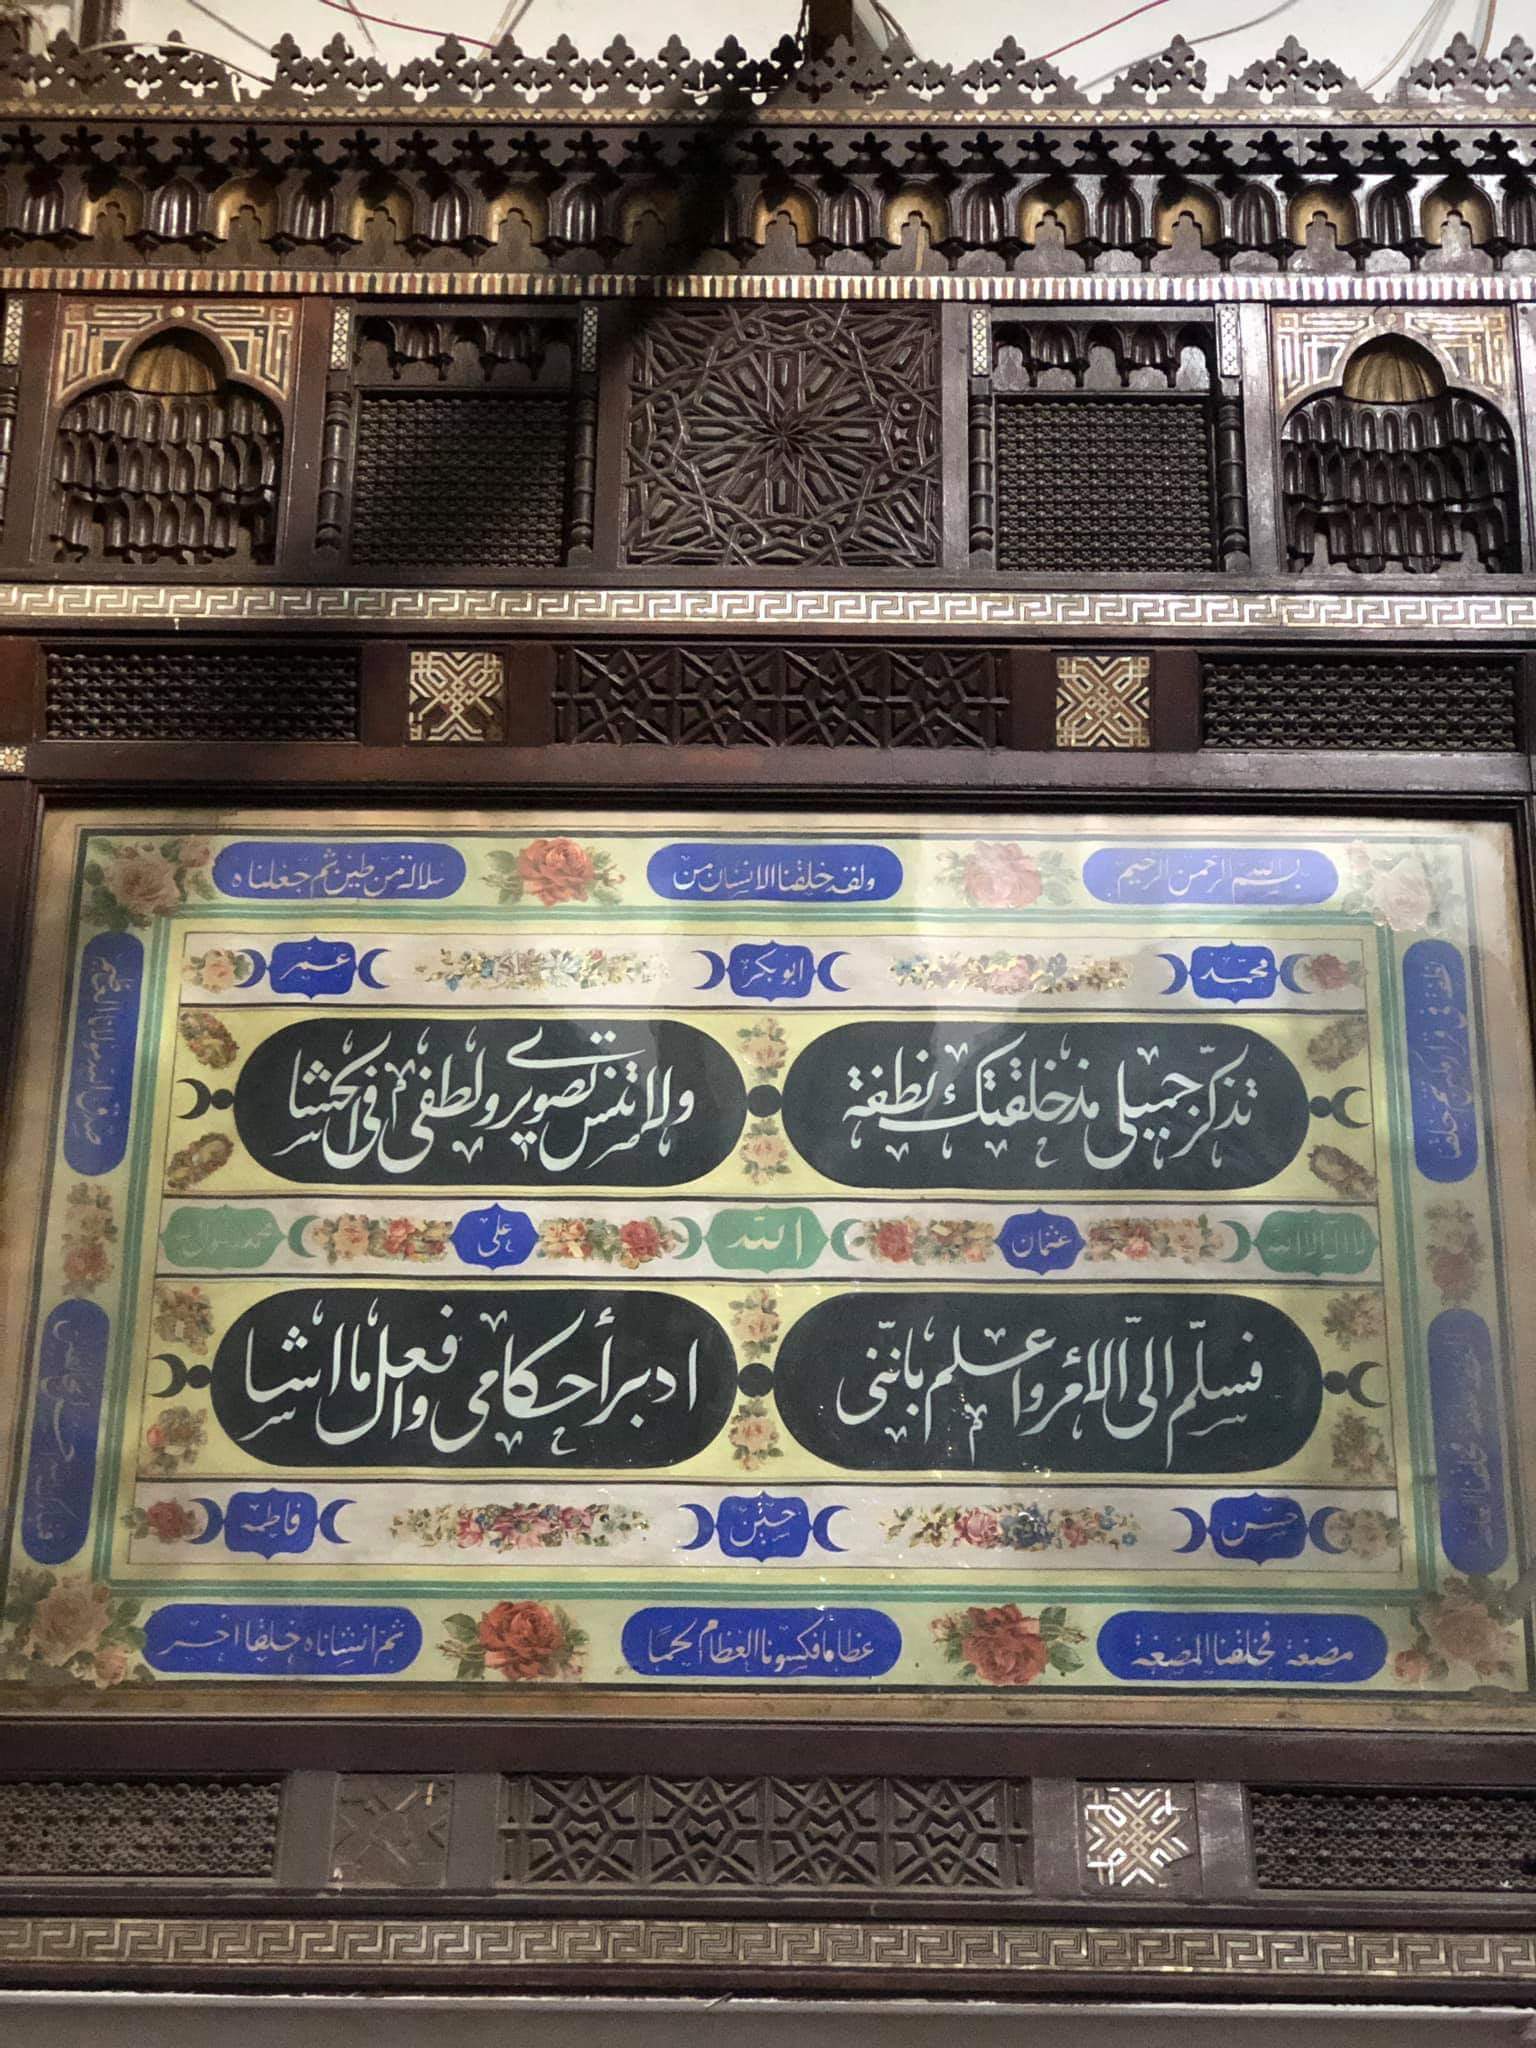 بسم الله الرحمن الرحيم
ولقد خلقنا الانسان من
سلالة من طين ثم جعلناه
نطفة في قرار مكين ثم خلقنا
مضغة فخلقنا المضغة
عظاما فكسونا العظام لحما
ثم انشاناه خلقا اخر
محمد
ابو بكر
عمر
تذكر جميلى مذ خلقتك نطفة
ولا تنس تصويرى ولطفى فى الحشا
لا اله الا الله
عثمان
الله
على
محمد رسول الله
فسلم الى الأمر واعلم باننى
ادبر أحكامى وافعل ما اشا
حسن
حسين
فاطمه